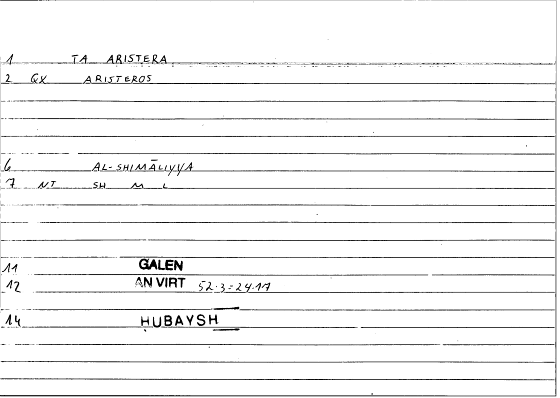 1 TA ARISTERA
2 GX ARISTEROS
6 AL-SHIMĀLIYYA
7 NT SH M L
11 GALEN
12 AN VIRT 52.3=24.17
14 HUBAYSH